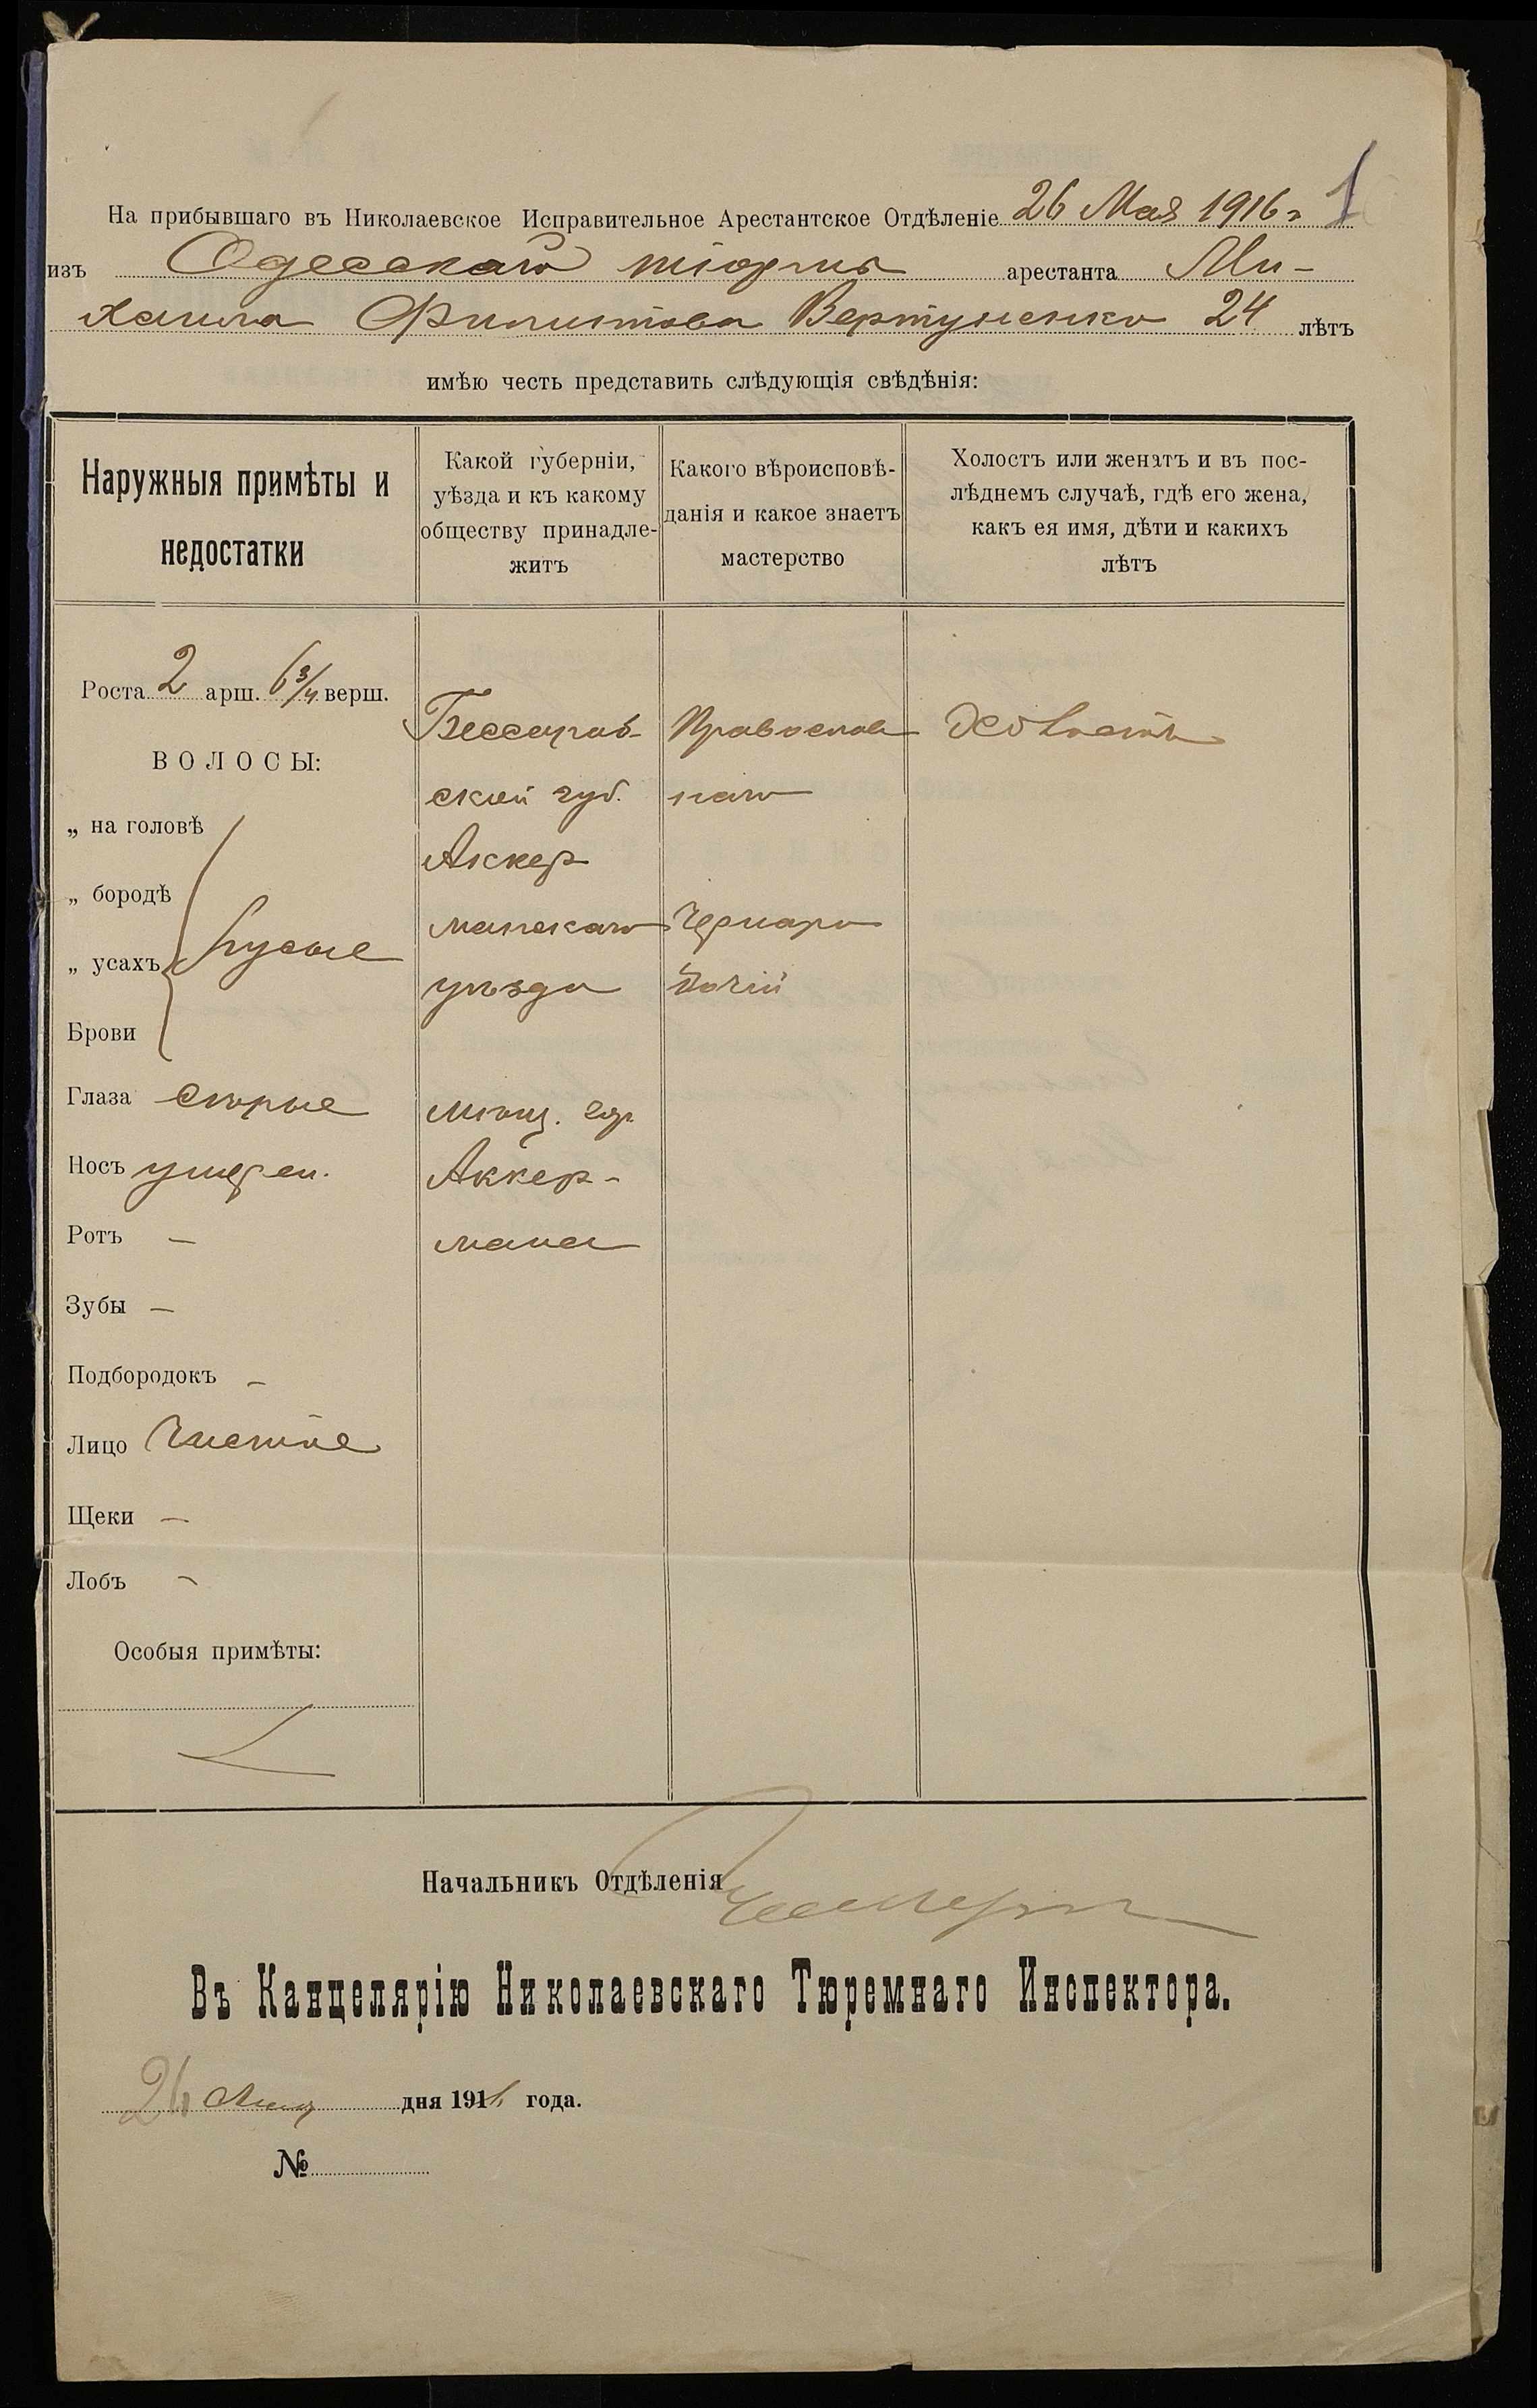 На прибывшаго въ Николаевское Исправительное Арестантское Отдѣленіе 26 Мая 1916 г 1
изъ Одесской тюрьмы арестанта Ми-
хаила Филиппова Вертуненко 24 лѣтъ
имѣю честь представить слѣдующія свѣдѣнія:
Наружныя примѣты и
недостатки
Какой губерніи,
уѣзда и къ какому
обществу принадле-
житъ
Какого вѣроисповѣ-
данія и какое знаетъ
мастерство
Холостъ или женатъ и въ пос-
лѣднемъ случаѣ, гдѣ его жена,
какъ ея имя, дѣти и какихъ
лѣтъ
Роста 2 арш. 6 3/4 верш.
ВОЛОСЫ:
„ на головѣ
„ бородѣ
„ усахъ русые
Брови
Глаза сѣрые
Носъ умѣрен.
Ротъ —
Зубы —
Подбородокъ —
Лицо чистое
Щеки —
Лобъ —
Особыя примѣты:
Бессараб-
ской губ.
Аккер
манскаго
уѣзда
мѣщ. гор.
Аккер-
мана
Православ
наго
Чернора
бочій
Холостъ
Начальникъ Отдѣленія
Въ Канцелярію Николаевскаго Тюремнаго Инспектора.
26 Мая дня 1916 года.
№